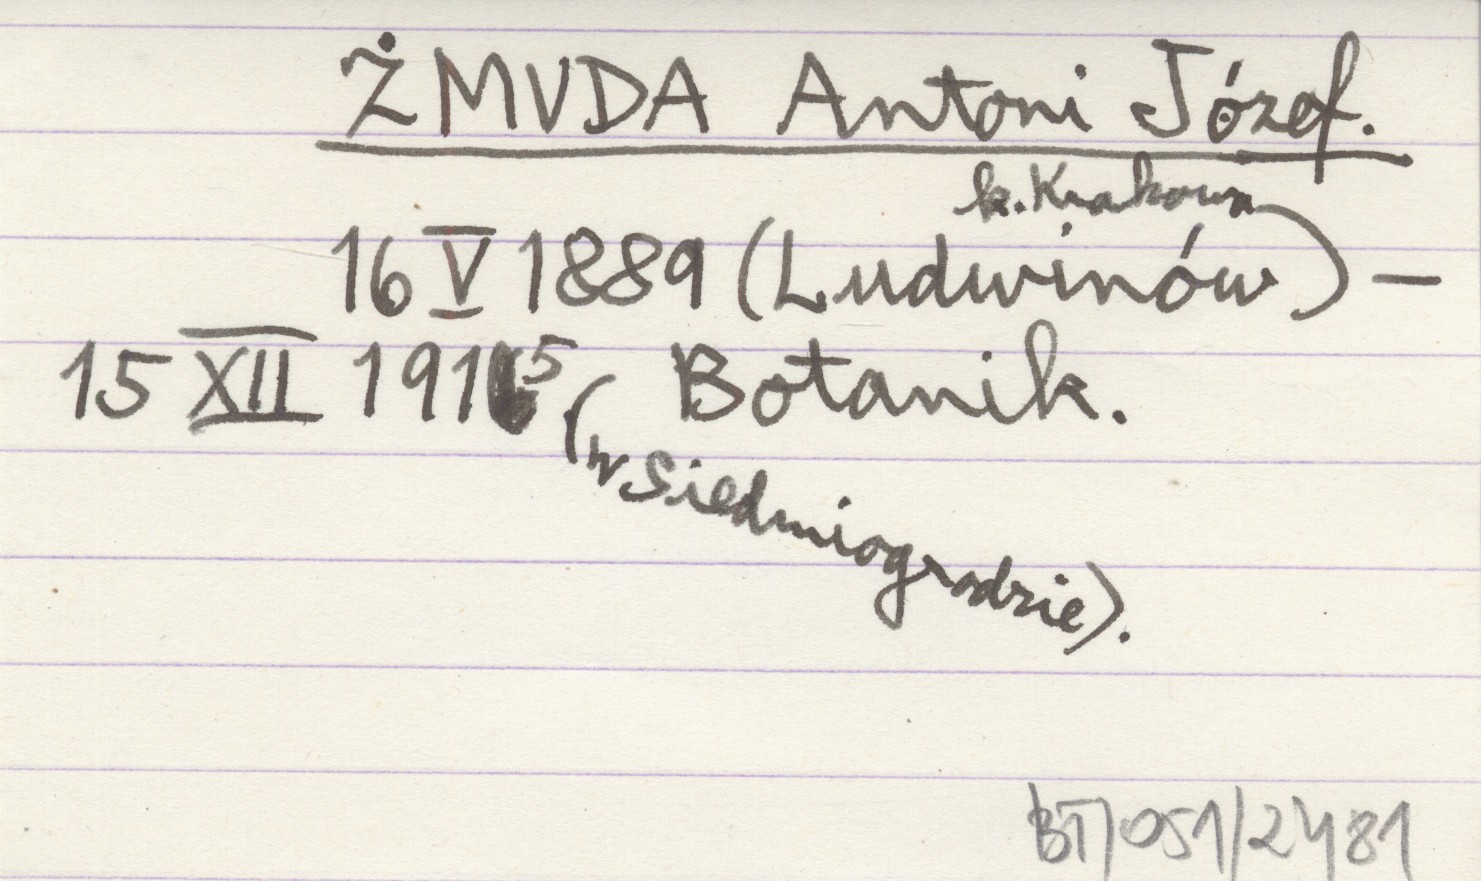 ŻMUDA Antoni Józef.
k. Krakowa
16 V 1889 (Ludwinów) –
15 XII 1915 Botanik.
(w Siedmiogrodzie).
BT/051/2481